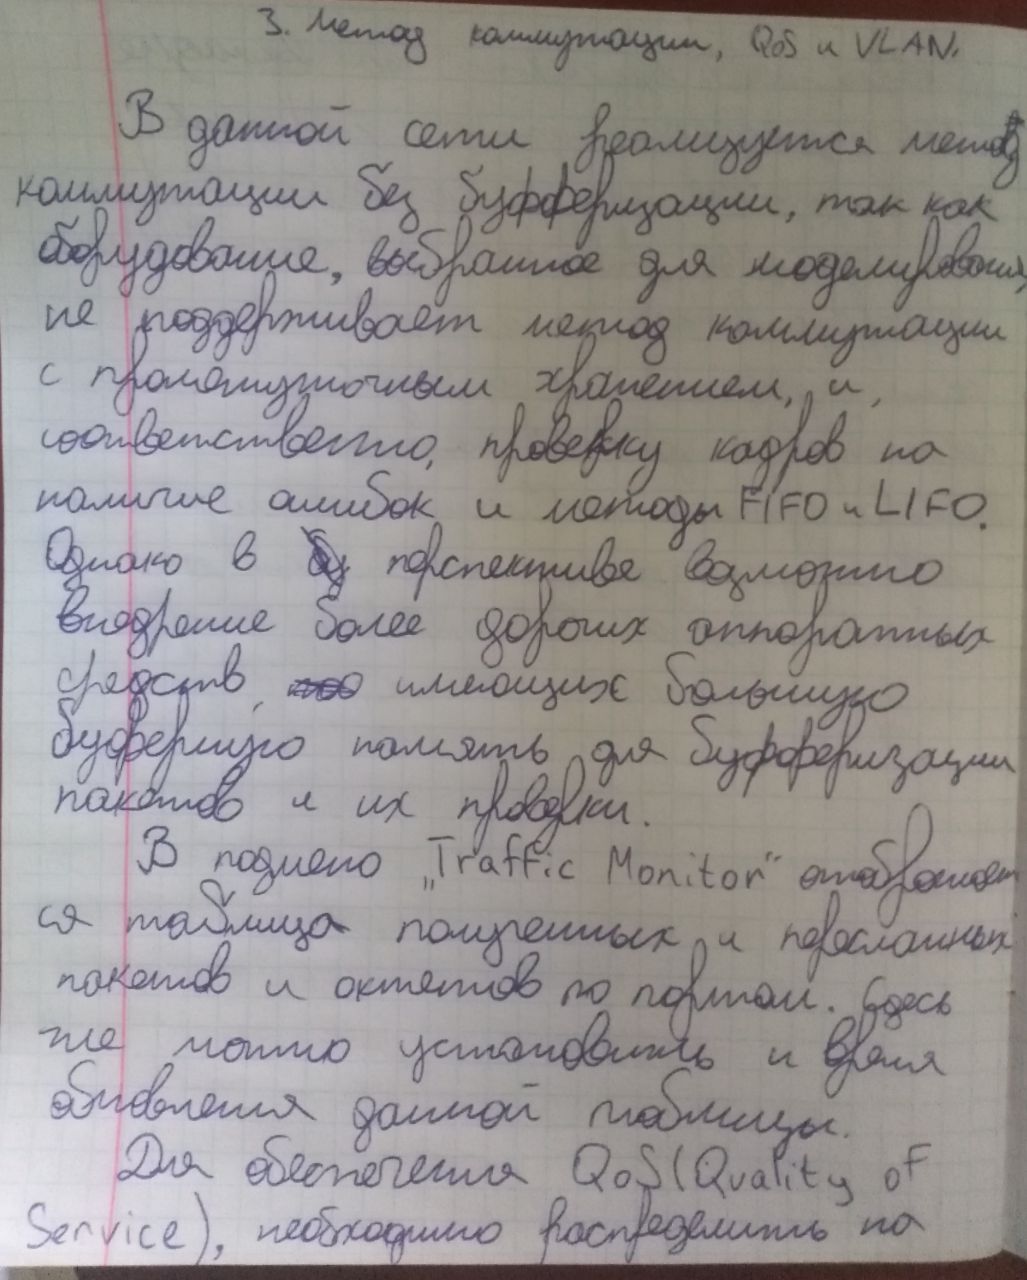 3. Метод коммутации, QoS и VLAN.
В данной сети реализуется метод
коммутации без буфферизации, так как
оборудование, выбранное для моделирования,
не поддерживает метод коммутации
с промежуточным хранением, и,
соответственно, проверку кадров на
наличие ошибок и методы FIFO и LIFO.
Однако в перспективе возможно
внедрение более дорогих аппаратных
средств, имеющих большую
буферную память для буфферизации
пакетов и их проверки.
В подменю „Traffic Monitor“ отображает
ся таблица полученных и пересланных
пакетов и октетов по портам. Здесь
же можно установить и время
обновления данной таблицы.
Для обеспечения QoS (Quality of
Service), необходимо распределить на